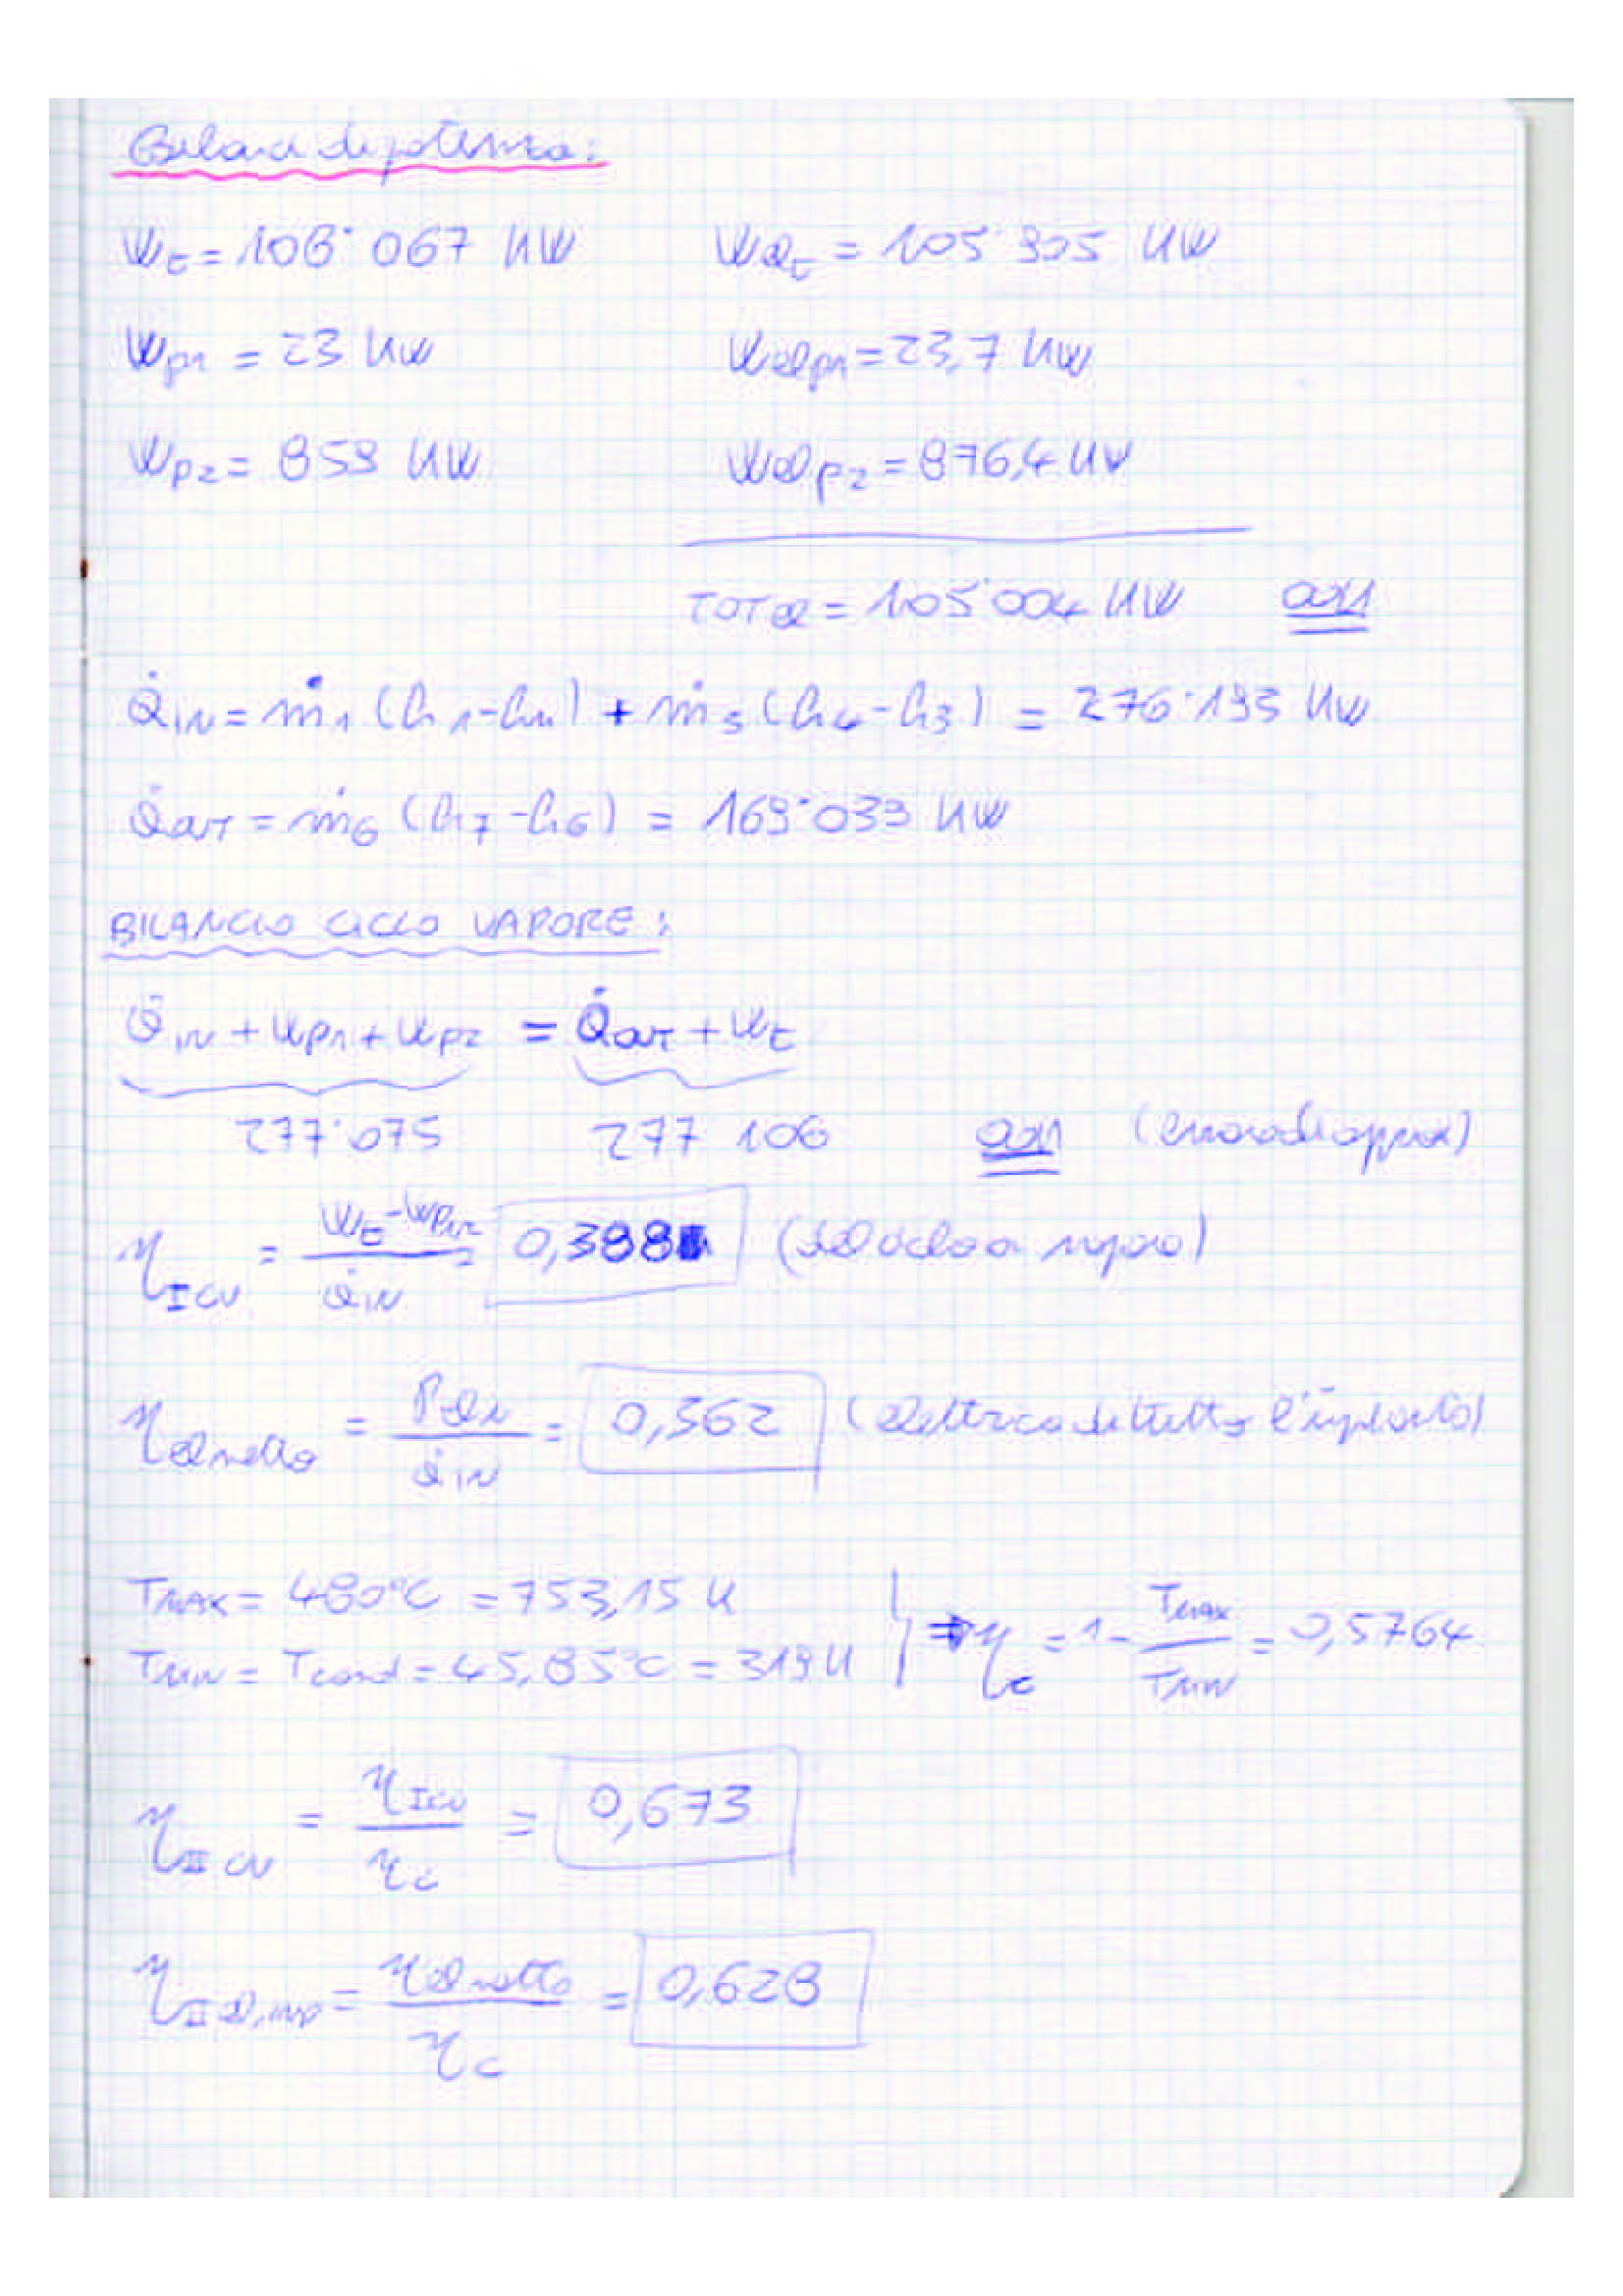 Bilanci di potenza:
Wt = 108'067 KW   Welt = 105'905 KW
Wp1 = 23 KW   Welp1 = 23,7 KW
Wp2 = 859 KW   Welp2 = 876,4 KW
TOTel = 105'004 KW
Q̇IN = ṁ1 (h1-hn) + ṁ3 (h4-h3) = 276'193 KW
Q̇OUT = ṁ6 (h7-h6) = 169'039 KW
BILANCIO CICLO VAPORE:
Q̇IN + Wp1 + Wp2 = Q̇OUT + Wt
277'075   277 106   (errore di approx)
ηICV = Wt-Wp1,2 / Q̇IN = 0,388 (del ciclo a vapore)
ηel netto = Pel,N / Q̇IN = 0,362 (elettrico di tutto l'impianto)
TMAX = 480°C = 753,15 K
TMIN = Tcond = 45,85°C = 319 K   ⇒ ηc = 1- Tmax / Tmin = 0,5764
ηIICV = ηICV / ηc = 0,673
ηII el,imp = ηel netto / ηc = 0,628